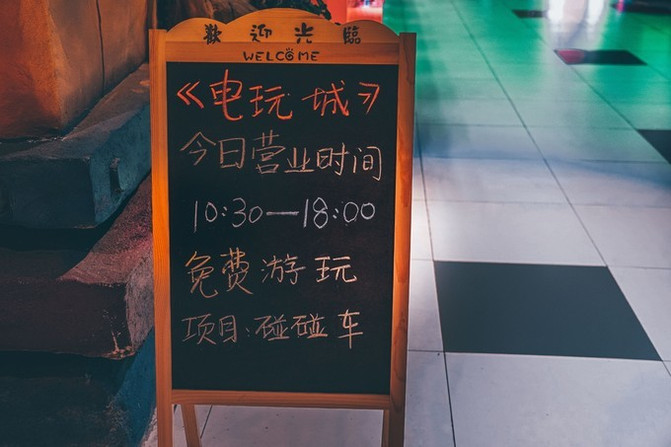 歡迎光臨
WELCOME
《电玩城》
今日营业时间
10:30—18:00
免费游玩
项目:碰碰车